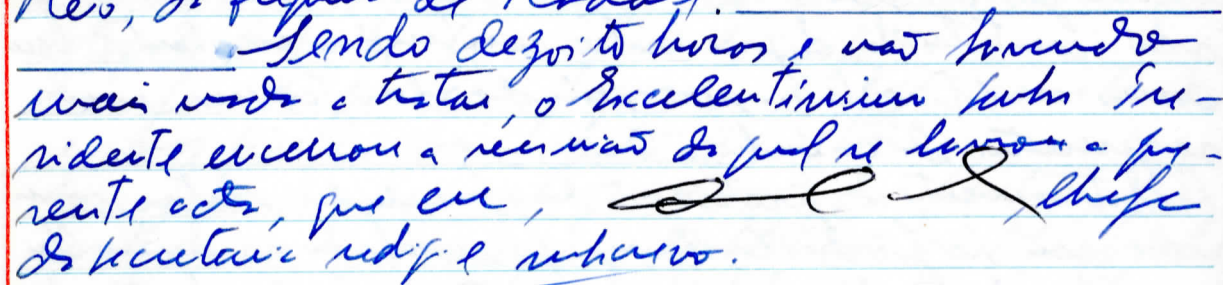 Sendo dezoito horas e não havendo
mais nada a tratar, o Excelentíssimo Senhor Pre-
sidente encerrou a reunião da qual se lavrou a pre-
sente acta, que eu, chefe
da secretaria redigi e subscrevo.